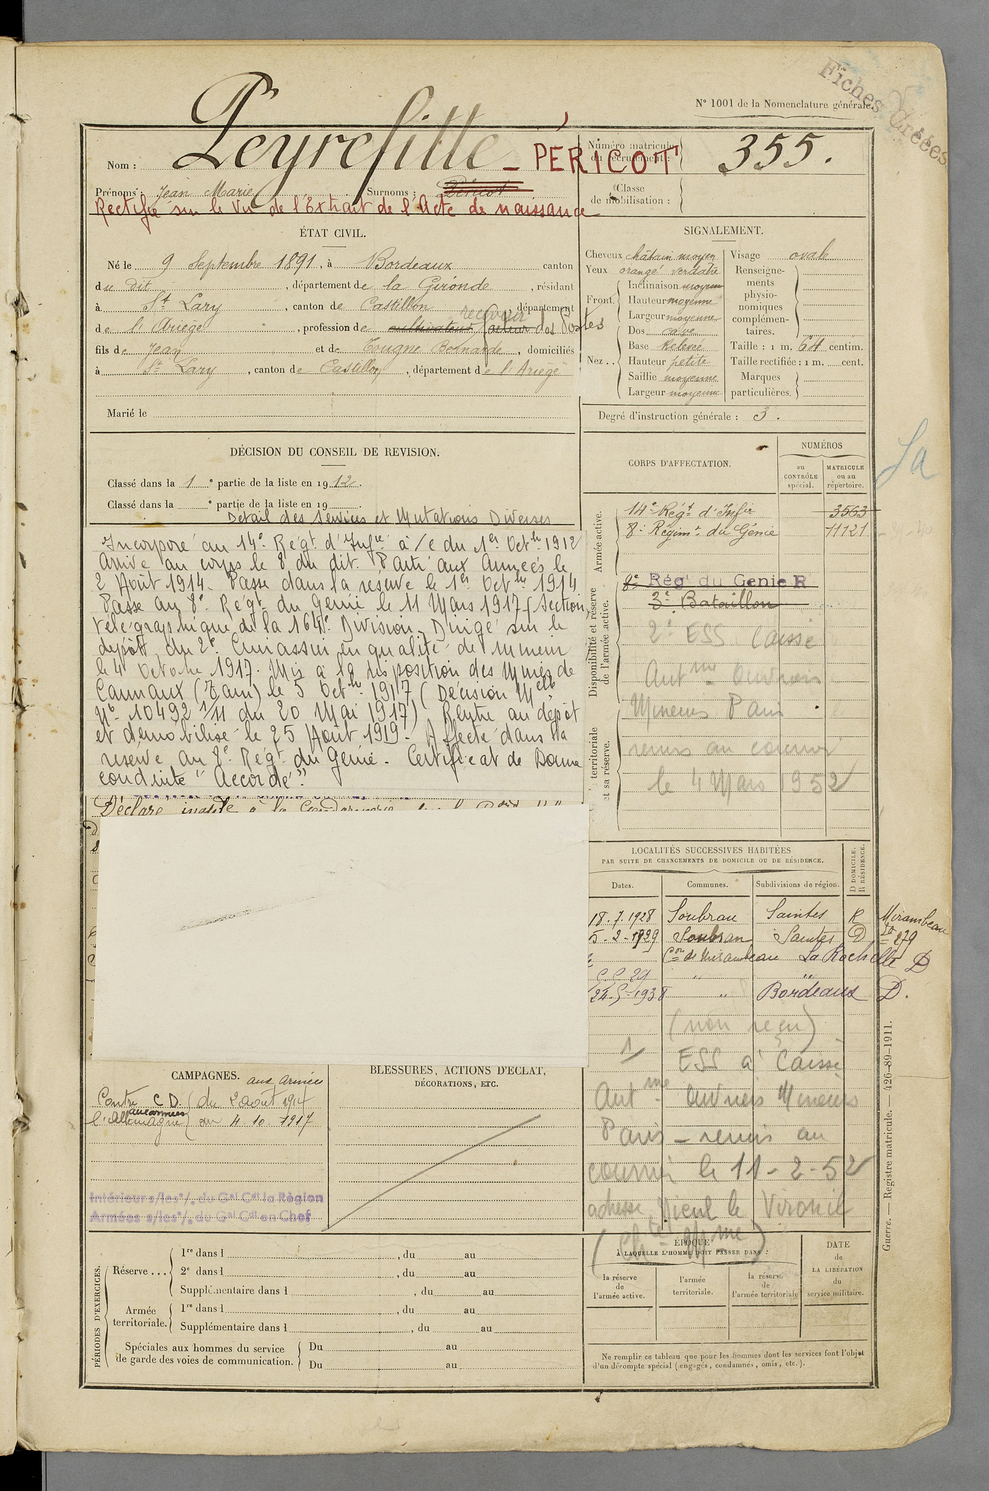 Fiches Créées
N° 1001 de la Nomenclature générale.
Nom : Peyrefitte - PÉRICOT
Numéro matricule du recrutement : 355.
Prénoms : Jean Marie Surnoms : Péricot
Classe de mobilisation :
Rectifié sur le Vu de l'Extrait de l'Acte de naissance
ÉTAT CIVIL.
Né le 9 Septembre 1891, à Bordeaux canton
du dit, département de la Gironde, résidant
à St Lary, canton de Castillon, département
de l'Ariège, profession de cultivateur facteur des Postes
receveur
fils de Jean et de Tougne Bernarde, domiciliés
à St Lary, canton de Castillon, département de l'Ariège
Marié le
SIGNALEMENT.
Cheveux châtain moyen
Yeux orangé verdâtre
Front. Inclinaison moyen
Hauteur moyenne
Largeur moyenne
Nez . . Dos cave
Base relevé
Hauteur petite
Saillie moyenne
Largeur moyenne
Visage ovale
Renseignements physionomiques complémentaires.
Taille : 1 m. 64 centim.
Taille rectifiée : 1 m. cent.
Marques particulières.
Degré d'instruction générale : 3.
DÉCISION DU CONSEIL DE REVISION.
Classé dans la 1e partie de la liste en 1912.
Classé dans la e partie de la liste en 19
Détail des Services et Mutations Diverses
Incorporé au 14e Régt d'Infie à /c du 1er Octbre 1912
Arrivé au corps le 8 du dit. Parti aux Armées le
2 Août 1914. Passé dans la réserve le 1er Octbre 1914
Passé au 8e Régt du Génie le 11 Mars 1917 (Section
Télégraphique de la 164e Division. Dirigé sur le
dépôt du 2e Cuirassier en qualité de mineur
le 4 octobre 1917. Mis à la disposition des Mines de
Carmaux (Tarn) le 5 Octbre 1917 (Décision Melle
N° 10492 1/11 du 20 Mai 1917) Rentré au dépôt
et démobilisé le 25 Août 1919. Affecté dans la
réserve au 8e Régt du Génie. Certificat de Bonne
conduite "Accordé".
Déclaré inapte à la Gendarmerie
CORPS D'AFFECTATION.
NUMÉROS
au CONTRÔLE spécial.
MATRICULE ou au répertoire.
Armée active.
14e Régt d'Infie 3563
8e Régimt du Génie 11121
Disponibilité et réserve de l'armée active.
8e Régt du Génie R
3e Bataillon
2e ESS Caisse
Autme Ouvriers
Mineurs Paris
territoriale et sa réserve.
remis au courrier
le 4 Mars 1952
Sa
LOCALITÉS SUCCESSIVES HABITÉES
PAR SUITE DE CHANGEMENTS DE DOMICILE OU DE RÉSIDENCE.
Dates. Communes. Subdivisions de région. D. DOMICILE. R. RÉSIDENCE.
18.7.1928 Soubran Saintes R Mirambeau
5-2-1929 Soubran Saintes D
Con de Mirambeau La Rochelle D
" "
24-5-1938 " Bordeaux D.
(non reçu)
1/ ESS à Caisse
Autme ouvriers Mineurs
Paris - remis au
courrier le 11-2-52
adresse
CAMPAGNES. aux armées
Contre C.D. du 2 août 1914
l'Allemagne aux armées au 4.10.1917
Intérieur s/les °/. du Gal Ct la Région
Armées s/les °/. du Gal Ct en Chef
BLESSURES, ACTIONS D'ÉCLAT,
DÉCORATIONS, ETC.
PÉRIODES D'EXERCICES.
Réserve . . . 1re dans l , du au
2e dans l , du au
Supplémentaire dans l , du au
Armée territoriale. 1re dans l , du au
Supplémentaire dans l , du au
Spéciales aux hommes du service de garde des voies de communication. Du au
Du au
ÉPOQUE
À LAQUELLE L'HOMME DOIT PASSER DANS :
la réserve de l'armée active.
l'armée territoriale.
la réserve de l'armée territoriale
DATE de LA LIBÉRATION du service militaire.
Ne remplir ce tableau que pour les hommes dont les services font l'objet
d'un décompte spécial (engagés, condamnés, omis, etc.).
Guerre. — Registre matricule. — 426-89-1911.